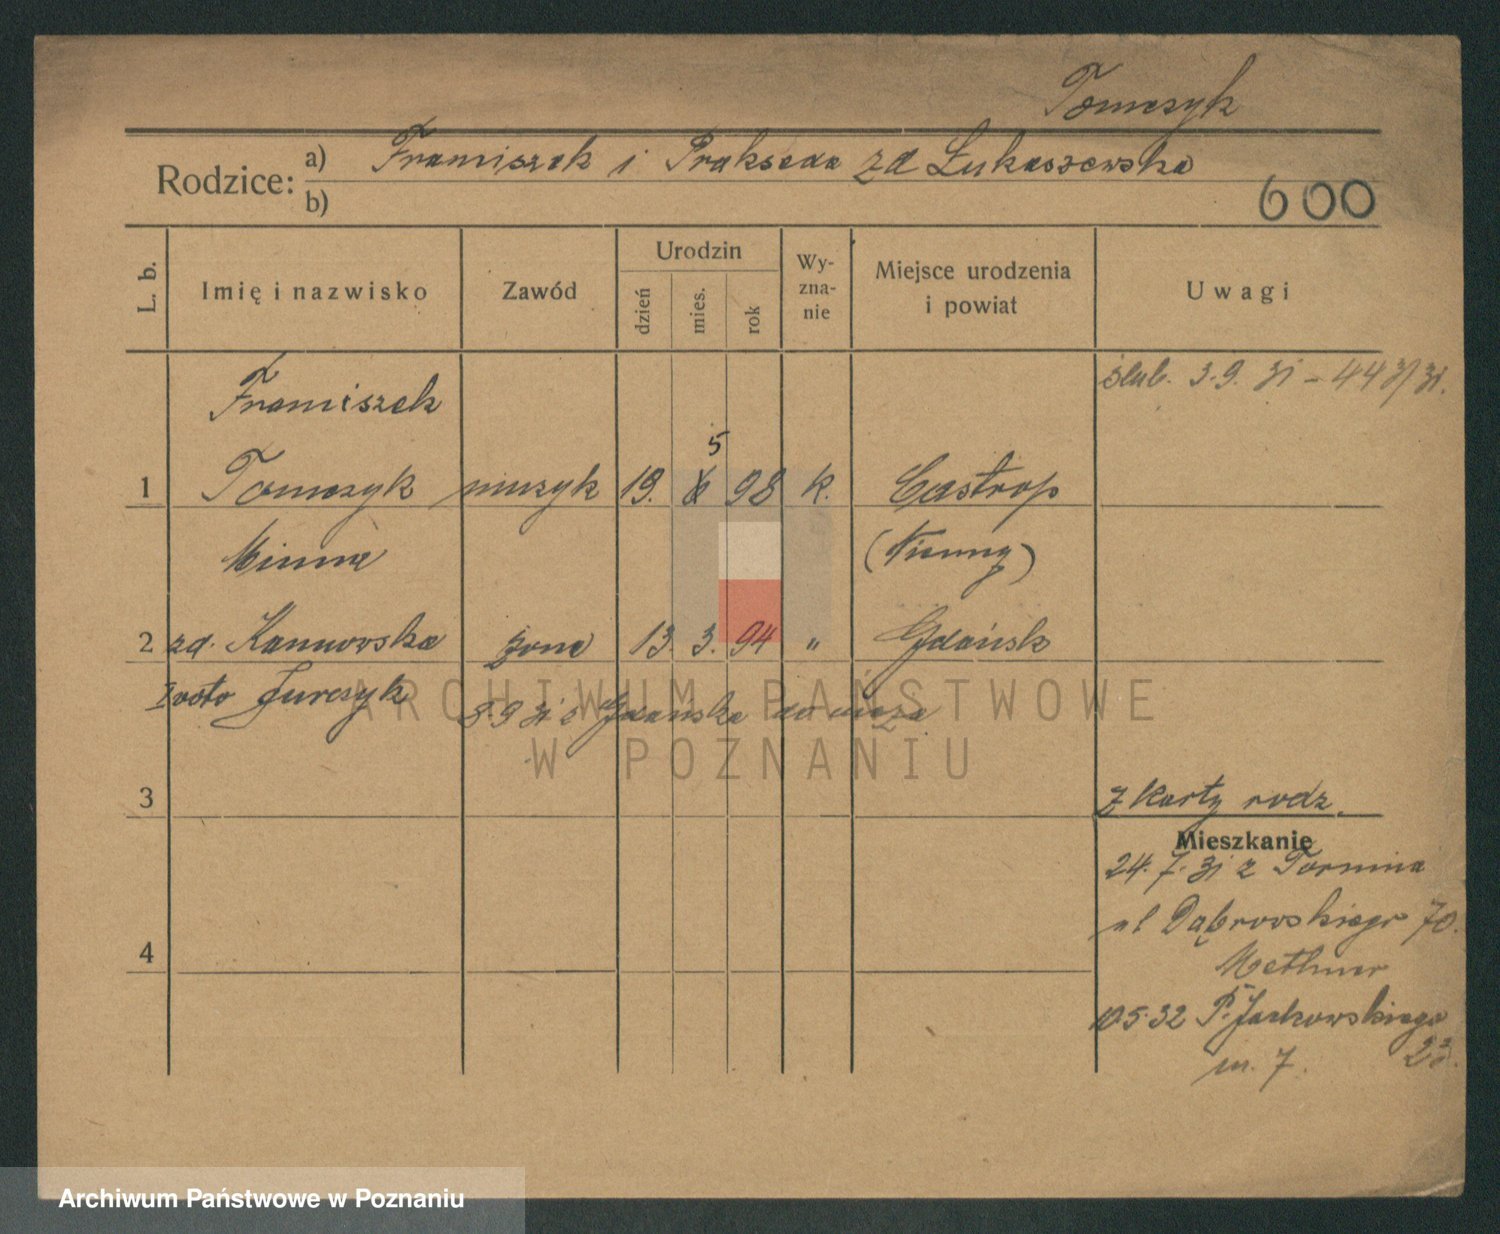 Tomczyk
Rodzice: a) Franciszek i Prakseda zd Łukaszewska
b)
600
L. b.
Imię i nazwisko
Zawód
Urodzin
dzień
mies.
rok
Wy-
zna-
nie
Miejsce urodzenia
i powiat
Uwagi
ślub. 3.9.31 - 443/31.
Franciszek
5
1 Tomczyk muzyk 19. 98 k. Castrop
Minna (Niemcy)
2 zd. Kannowska żona 13. 3. 94 " Gdańsk
I voto Jurczyk
3.9 31 z Gdańska do męża
ARCHIWUM PAŃSTWOWE
W POZNANIU
3
z karty rodz.
Mieszkanie
24.7.31 z Torunia
ul Dąbrowskiego 70.
4
Methner
10.5.32 P. Jackowskiego
23.
m. 7.
Archiwum Państwowe w Poznaniu